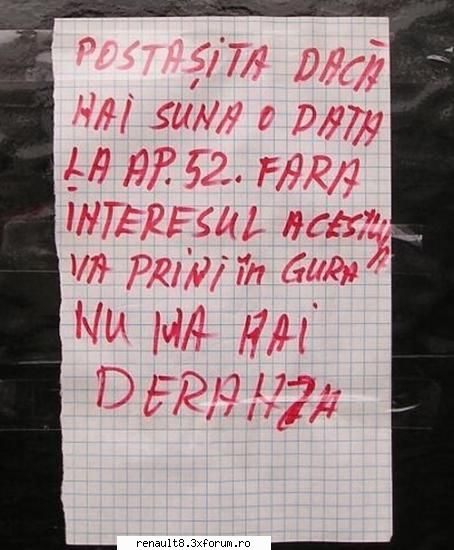 POSTAȘITA DACĂ
HAI SUNA O DATA
LA AP. 52. FARA
INTERESUL ACESTUIA
VA PRINI în GURA
NU MA HAI
DERANZA
renault8.3xforum.ro